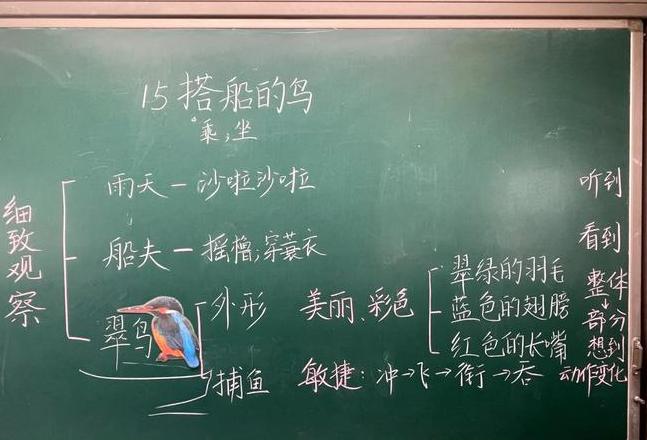 15 搭船的鸟
乘,坐
细致观察
雨天—沙啦沙啦 听到
船夫—摇橹,穿蓑衣 看到
翠鸟
外形 美丽、彩色
翠绿的羽毛 整体
蓝色的翅膀 ↓部分
红色的长嘴 想到
捕鱼 敏捷:冲→飞→衔→吞 动作变化